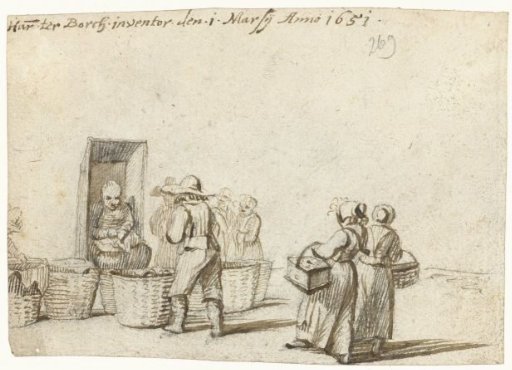 Har̄ ter Borch · inventor den · 1 · Marsij Anno 1651 ·
269